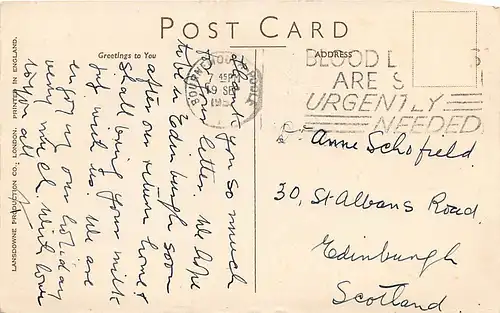 POST CARD
Greetings to You
ADDRESS
BOURNEMOUTH POOLE
7 45PM
9 SEP
195
BLOOD
ARE
URGENTLY
NEEDED
Thank you so much
for your letter. We hope
to be in Edinburgh soon
after our return home &
shall bring your milk
jug with us. We are
enjoying our holiday
very much. With love
to you all
Anne Schofield.
30, St Albans Road.
Edinburgh
Scotland.
LANSDOWNE PRODUCTION CO., LONDON. PRINTED IN ENGLAND.